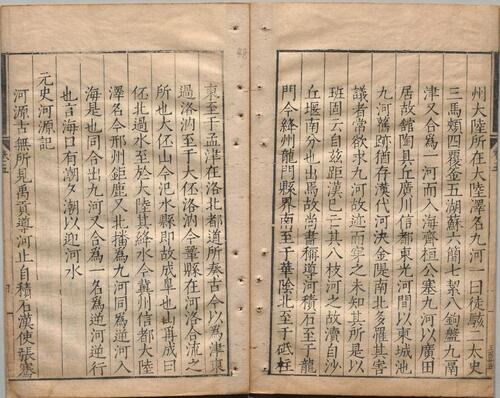 州大陸所在大陸澤名九河一曰徒駭二太史
三馬頰四覆釜五湖蘇六簡七絜八鉤盤九鬲
津又合為一河而入海齊桓公塞九河以廣田
居故館陶貝丘廣川信都東光河間以東城池
九河舊跡猶存漢代河決金隄南北多罹其害
議者常欲求九河故迹而穿之未知其所是以
班固云自兹距漢已亡其八枝河之故瀆自沙
丘堰南分也出焉故尚書稱導河積石至于龍
門今絳州龍門縣界南至于華陰北至于砥柱
東至于孟津在洛北都道所奏古今以為津東
過洛汭至于大伾洛汭今鞏縣在河洛合流之
所也大伾山今汜水縣即故成臯也山再成曰
伾北過水至於大陸其絳水今冀州信都大陸
澤名今邢州鉅鹿又北播為九河同為逆河入
海是也同合出九河又合為一名為逆河逆行
也言海口有潮夕潮以迎河水
元史河源記
河源古無所見禹貢導河止自積石漢使張騫